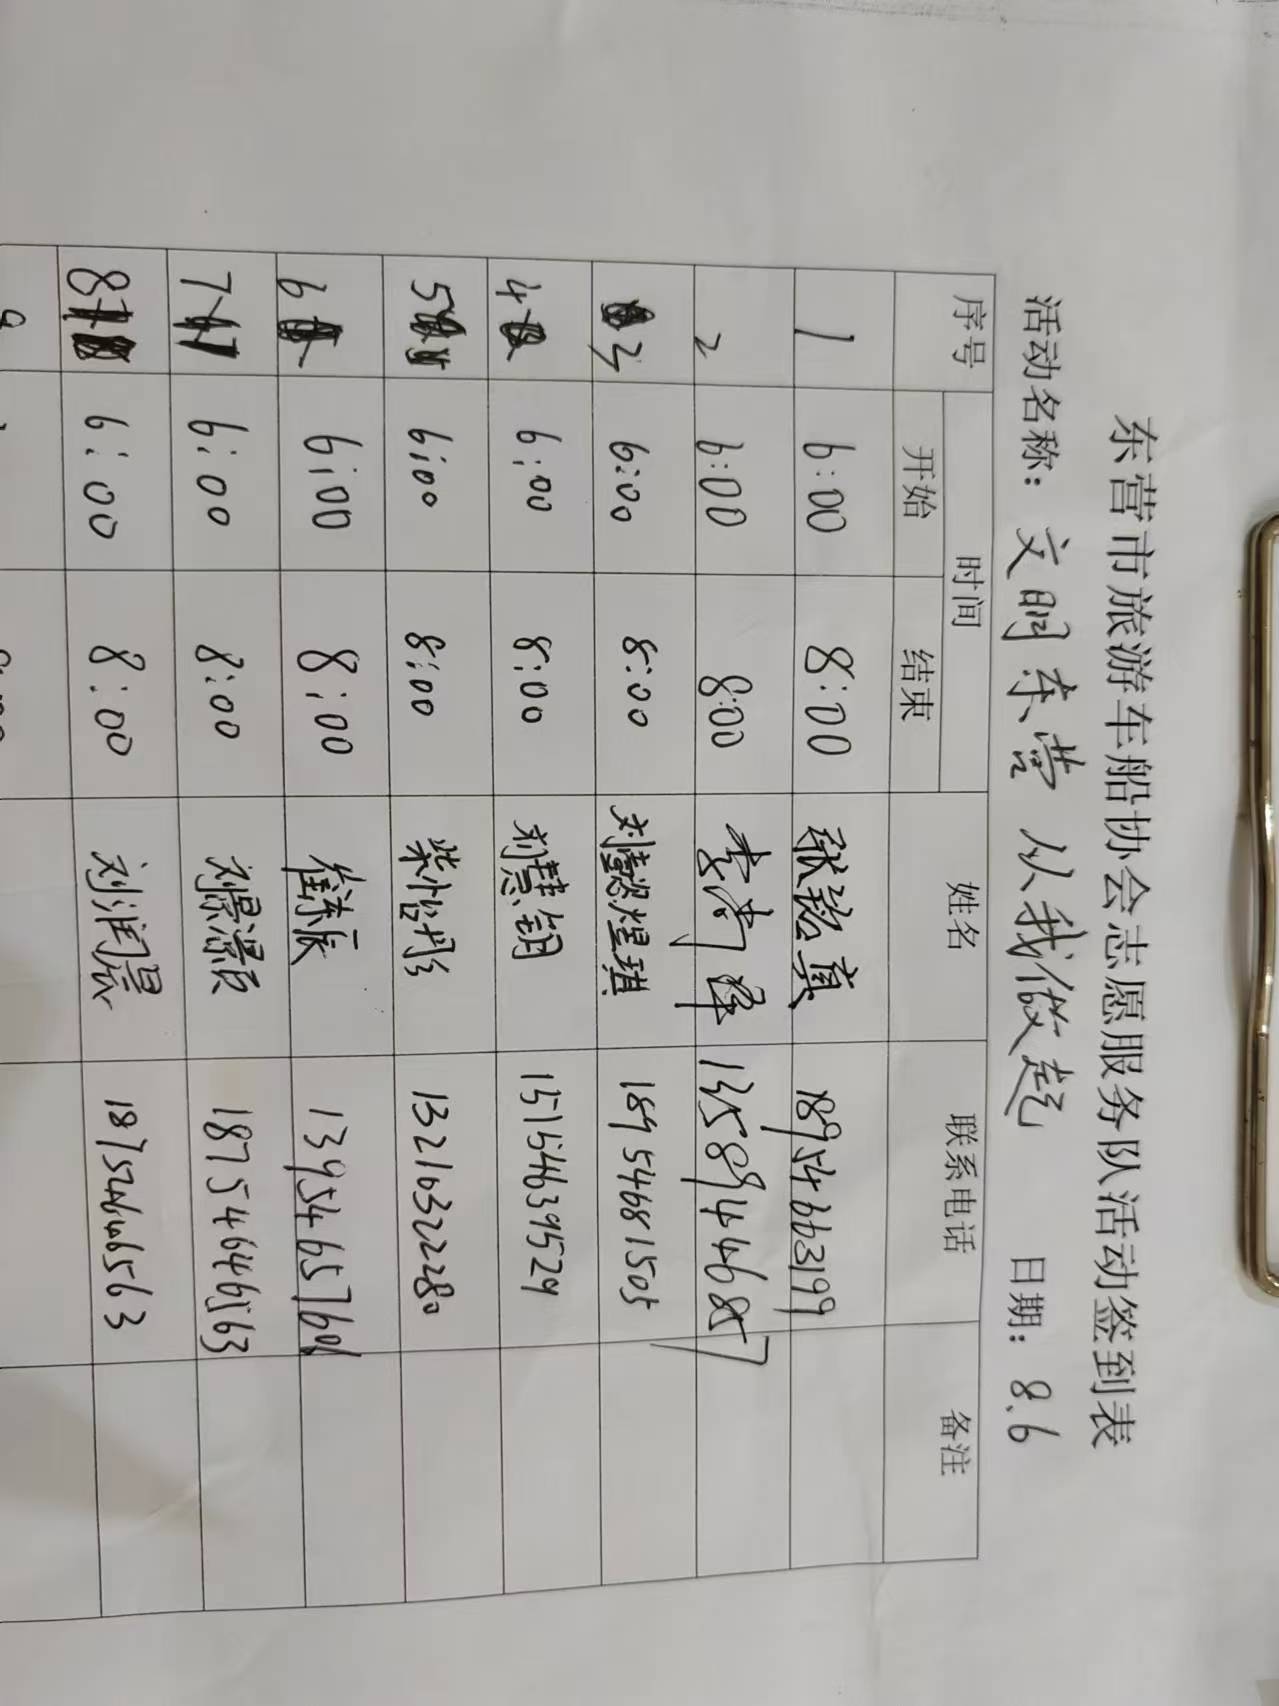 东营市旅游车船协会志愿服务队活动签到表
活动名称：文明东营 从我做起 日期：8.6
序号 时间 姓名 联系电话 备注
开始 结束
1 6:00 8:00 张铭真 18954663199
2 6:00 8:00 李 峰 13589446857
3 6:00 8:00 刘懿煌琪 18954681505
4 6:00 8:00 刘慧钥 15154639529
5 6:00 8:00 柴怡彤 13216322280
6 6:00 8:00 崔东辰
7 6:00 8:00 刘景灏 18754646563
8 6:00 8:00 刘润晨 18754646563
9